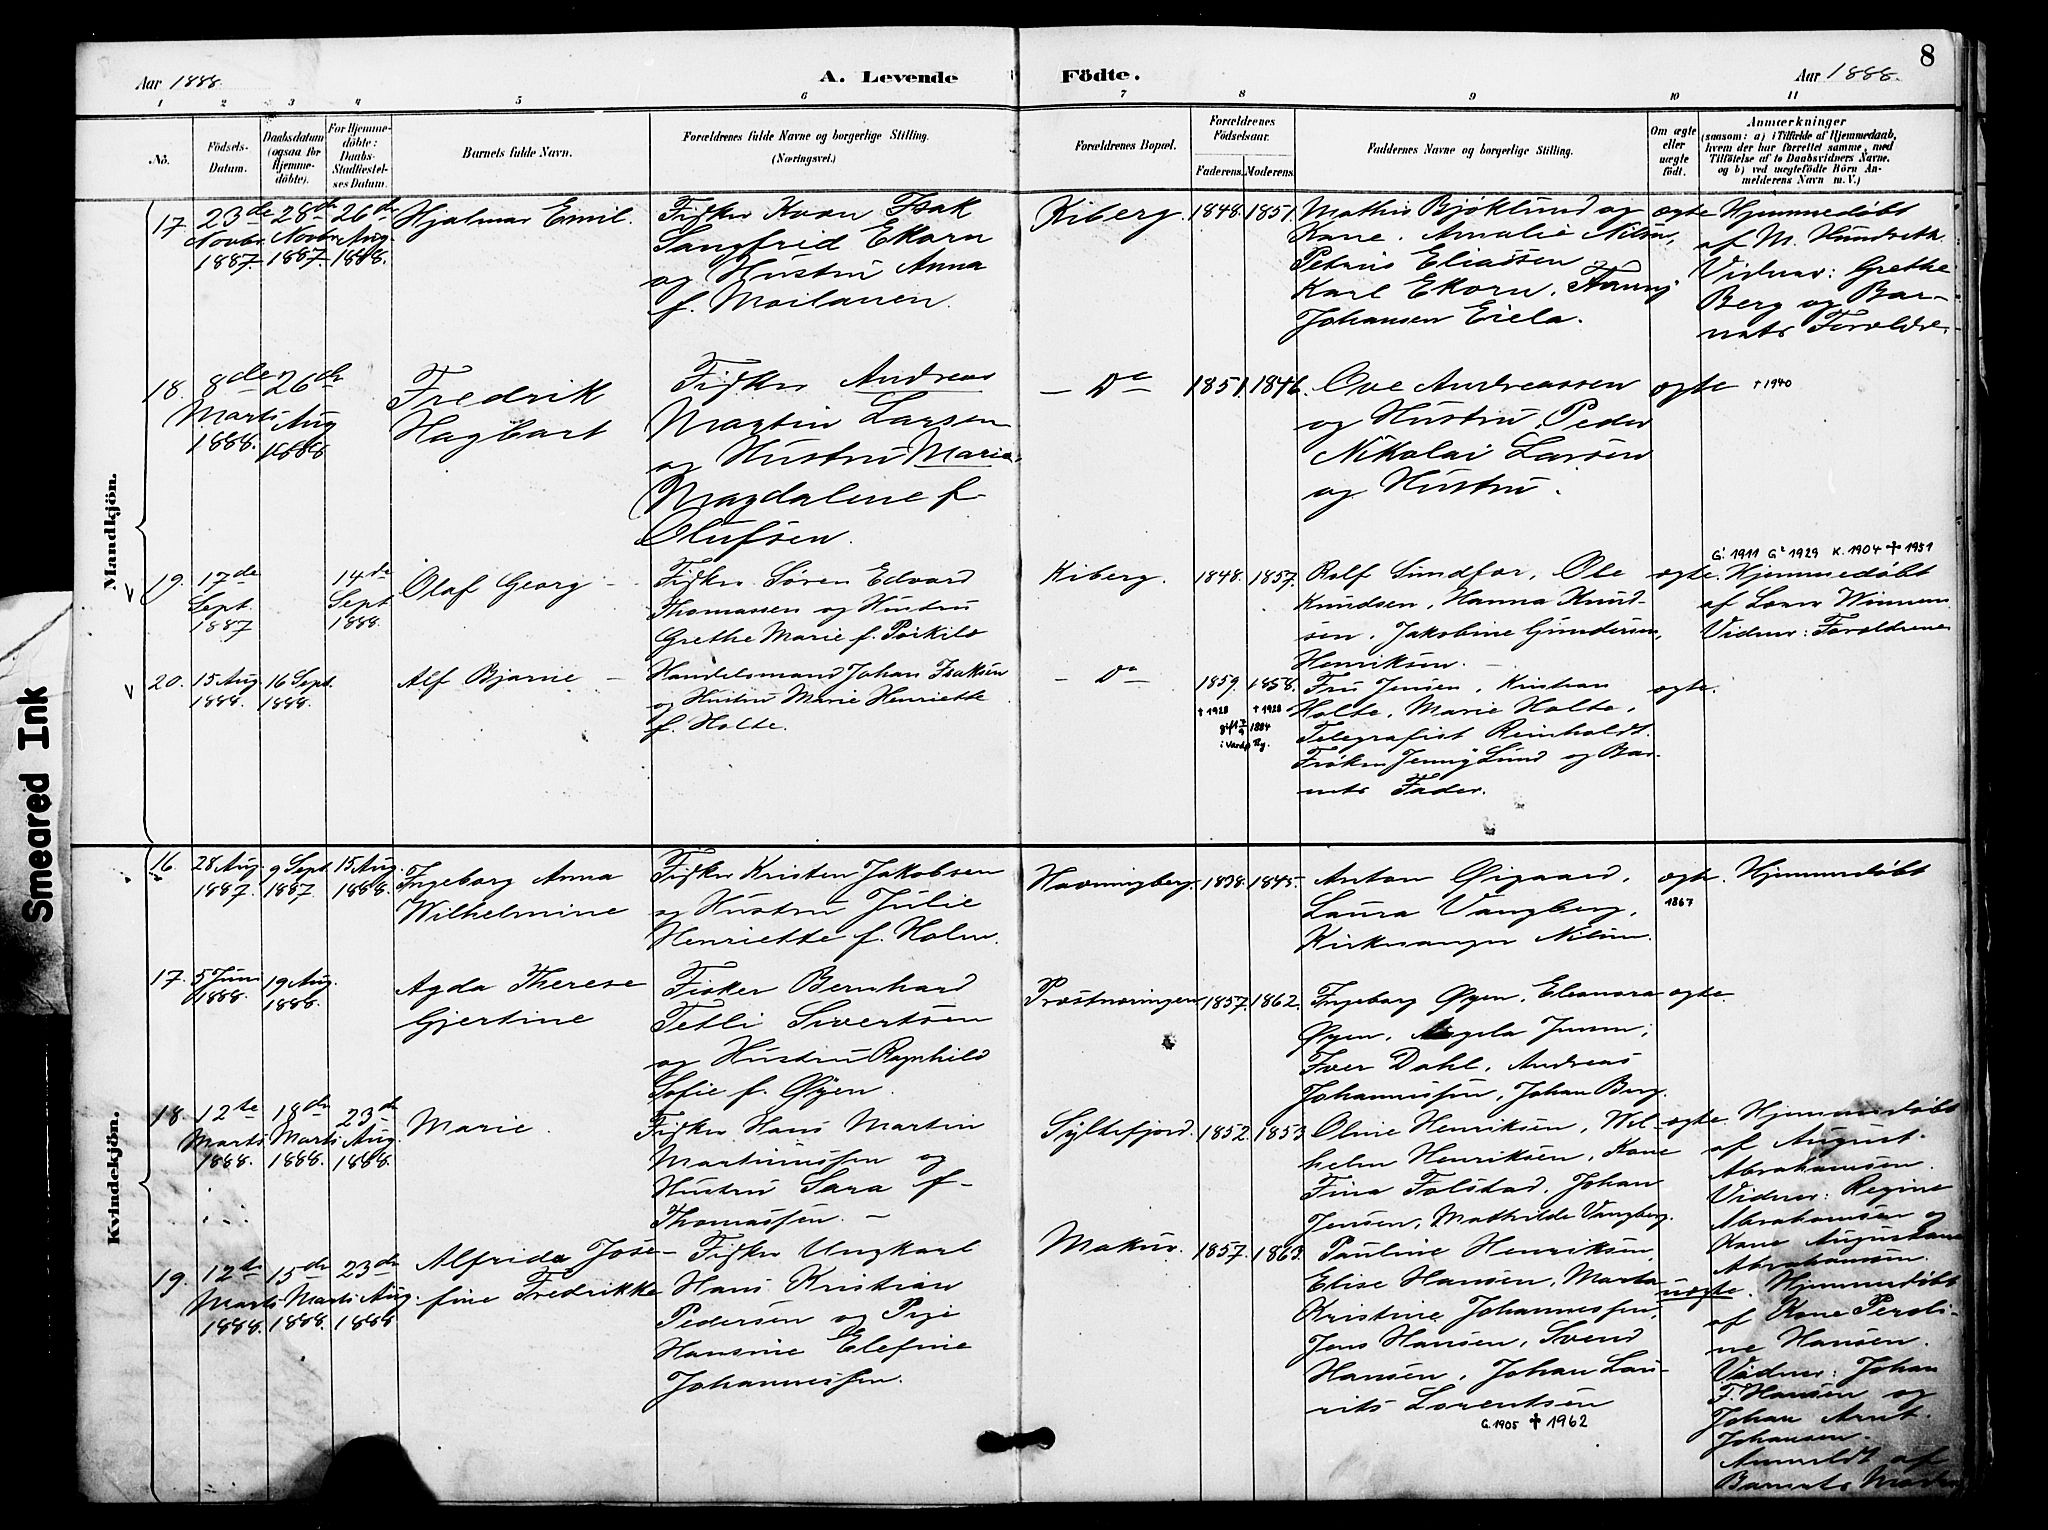 8
Aar 1888. A. Levende Födte. Aar 1888.
1 2 3 4 5 6 7 8 9 10 11
No.
Födsels-
Datum.
Daabsdatum
(ogsaa for
Hjemme-
döbte).
For Hjemme-
döbte:
Daabs-
Stadfæstel-
ses Datum.
Barnets fulde Navn.
Forældrenes fulde Navne og borgerlige Stilling.
(Næringsvei.)
Forældrenes Bopæl.
Forældrenes
Födselsaar.
Faderens. Moderens.
Faddernes Navne og borgerlige Stilling.
Om ægte
eller
uægte
födt.
Anmærkninger
(saasom: a) i Tilfælde af Hjemmedaab,
hvem der har forrettet samme, med
Tilföielse af to Daabsvidners Navne.
og b) ved uægtefödte Börn An-
melderens Navn m. V.)
Mandkjön.
17.
23de
Novbr
1887.
28de
Novbr
1887.
26de
Aug.
1888.
Hjalmar Emil.
Fisker Kvæn Isak
Sangfrid Ekorn
og Hustru Anna
f. Moilanen.
Kiberg.
1848.
1851.
Mathis Bjöklund og
Kone. Amalie Nilsen,
Petrus Eliassen
Karl Ekorn. Fanny
Johansen Eiela.
ægte
Hjemmedøbt
af M. Hundseth.
Vidner: Grethe
Berg og Bar-
nets Forældre
18.
8de
Marts
1888.
26de
Aug
1888
Fredrik
Hagbart
Fisker Andreas
Martin Larsen
og Hustru Maria
Magdalene f.
Olufsen.
— Do —
1851.
1846.
Ove Andreassen
og Hustru, Peder
Nikolai Larsen
og Hustru.
ægte
† 1940
19.
17de
Sept.
1887
14de
Sept
1888.
Olaf Georg —
Fisker Sören Edvard
Thomassen og Hustru
Grethe Marie f. Poikilo
Kiberg.
1848.
1857.
Rolf Sundfør, Ole
Knudsen, Hanna Knud-
sen, Jakobine Gundersen,
Henriksen. —
ægte.
G¹ 1911 G² 1929 K. 1904 ✝ 1951
Hjemmedøbt
af Lærer Winnem
Vidner: Forældrene
20.
15 Aug.
1888.
16 Sept.
1888.
Alf Bjarne —
Handelsmand Johan Isaksen
og Hustru Marie Henriette
f. Holte.
— Do —
1859.
† 1928
1858.
† 1928
gift 7/9 1884
i Vardø By.
Fru Jensen, Kristian
Holte, Marie Holte,
Telegrafist Reinholdt.
Frøken Jenny Lund og Bar-
nets Fader.
ægte.
Kvindekjön.
16.
28 Aug.
1887.
9 Sept.
1887.
15 Aug.
1888.
Ingeborg Anna
Wilhelmine
Fisker Kristen Jakobsen
og Hustru Julie
Henriette f. Holm.
Havningberg.
1838.
1845.
Anton Øigaard,
Laura Vangberg,
Kirkesanger Nilsen.
ægte.
1867
Hjemmedøbt
17.
5 Juni
1888.
19 Aug.
1888.
Agda Therese
Gjertine
Fisker Bernhard
Tetli Sivertsen
og Hustru Ragnhild
Sofie f. Øyen.
Præstnæringen
1857.
1862.
Ingeborg Øyen, Eleonora
Øyen, Angela Jensen,
Iver Dahl, Andreas
Johannessen, Johan Berg.
ægte.
18.
12te
Marts
1888.
18de
Marts
1888.
23de
Aug.
1888.
Marie.
Fisker Hans Martin
Martinussen og
Hustru Sara f.
Thomassen. —
Syltefjord.
1852.
1853.
Oline Henriksen, Wil-
helm Henriksen, Kone
Fina Folstad, Johan
Jensen, Mathilde Vangberg.
ægte.
Hjemmedøbt
af August
Abrahamsen.
Vidner: Regine
Abrahamsen og
Kone Augustana
Abrahamsen.
19.
12te
Marts
1888.
15de
Marts
1888.
23de
Aug.
1888
Alfride Jose-
fine Fredrikke
Fisker Ungkarl
Hans Kristian
Pedersen og Pige
Hansine Elefine
Johannessen.
Makur.
1857.
1863.
Pauline Henriksen,
Elise Hansen, Marta
Kristine Johannessen,
Jens Hansen, Svend
Hansen, Johan Lau-
rits Lorentsen
G. 1905 ✝ 1962
uægte.
Hjemmedøbt
af Kone Peroli-
ne Hansen.
Vidner: Johan
F. Hansen og
Johan Arnt
Johansen.
Anmeldt af
Barnets Moder
Smeared Ink